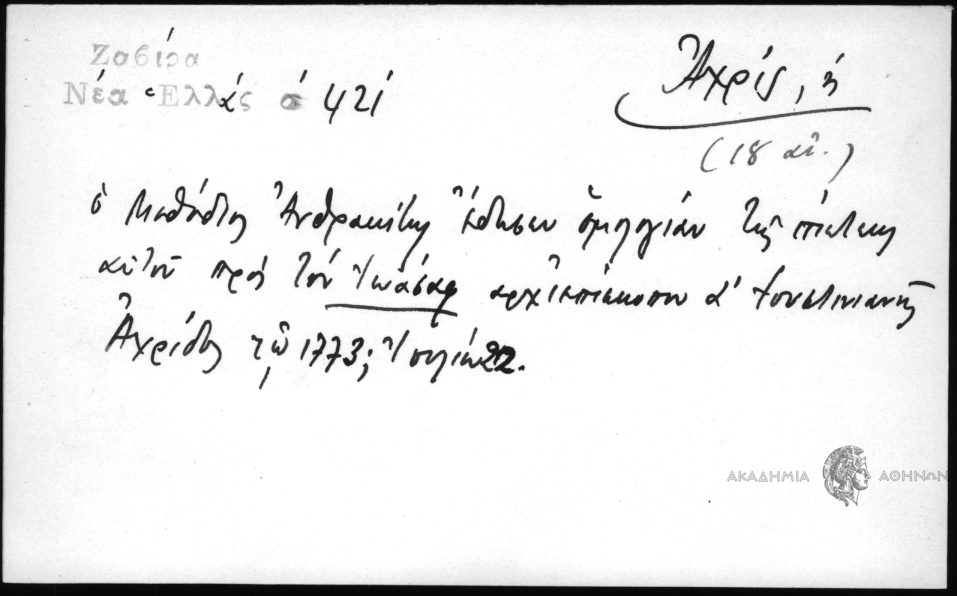 Ζαβίρα
Νέα Ἑλλάς σ 421
Ἀχρίς, ἡ
(18 αἰ.)
ὁ Μεθόδιος Ἀνθρακίτης ἔκδησεν ὁμολογίαν τῆς πίστεως
αὐτοῦ πρὸς τὸν Ἰωάσαφ ἀρχιεπίσκοπον α' Ἰουστινιανῆς
Ἀχρίδος τῷ 1773; Ἰουλίῳ 22.
ΑΚΑΔΗΜΙΑ ΑΘΗΝΩΝ